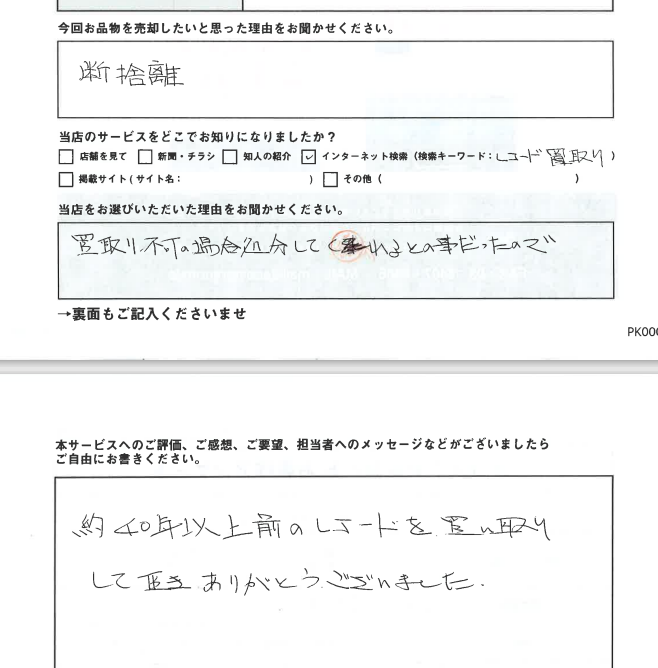 今回お品物を売却したいと思った理由をお聞かせください。
断捨離
当店のサービスをどこでお知りになりましたか？
□ 店舗を見て □ 新聞・チラシ □ 知人の紹介 ☑ インターネット検索（検索キーワード：レコード買取り）
□ 掲載サイト（サイト名： ） □ その他（ ）
当店をお選びいただいた理由をお聞かせください。
買取り不可の場合処分してくれるとの事だったので
→裏面もご記入くださいませ
PK006
本サービスへのご評価、ご感想、ご要望、担当者へのメッセージなどがございましたら
ご自由にお書きください。
約40年以上前のレコードを買い取り
して頂きありがとうございました.